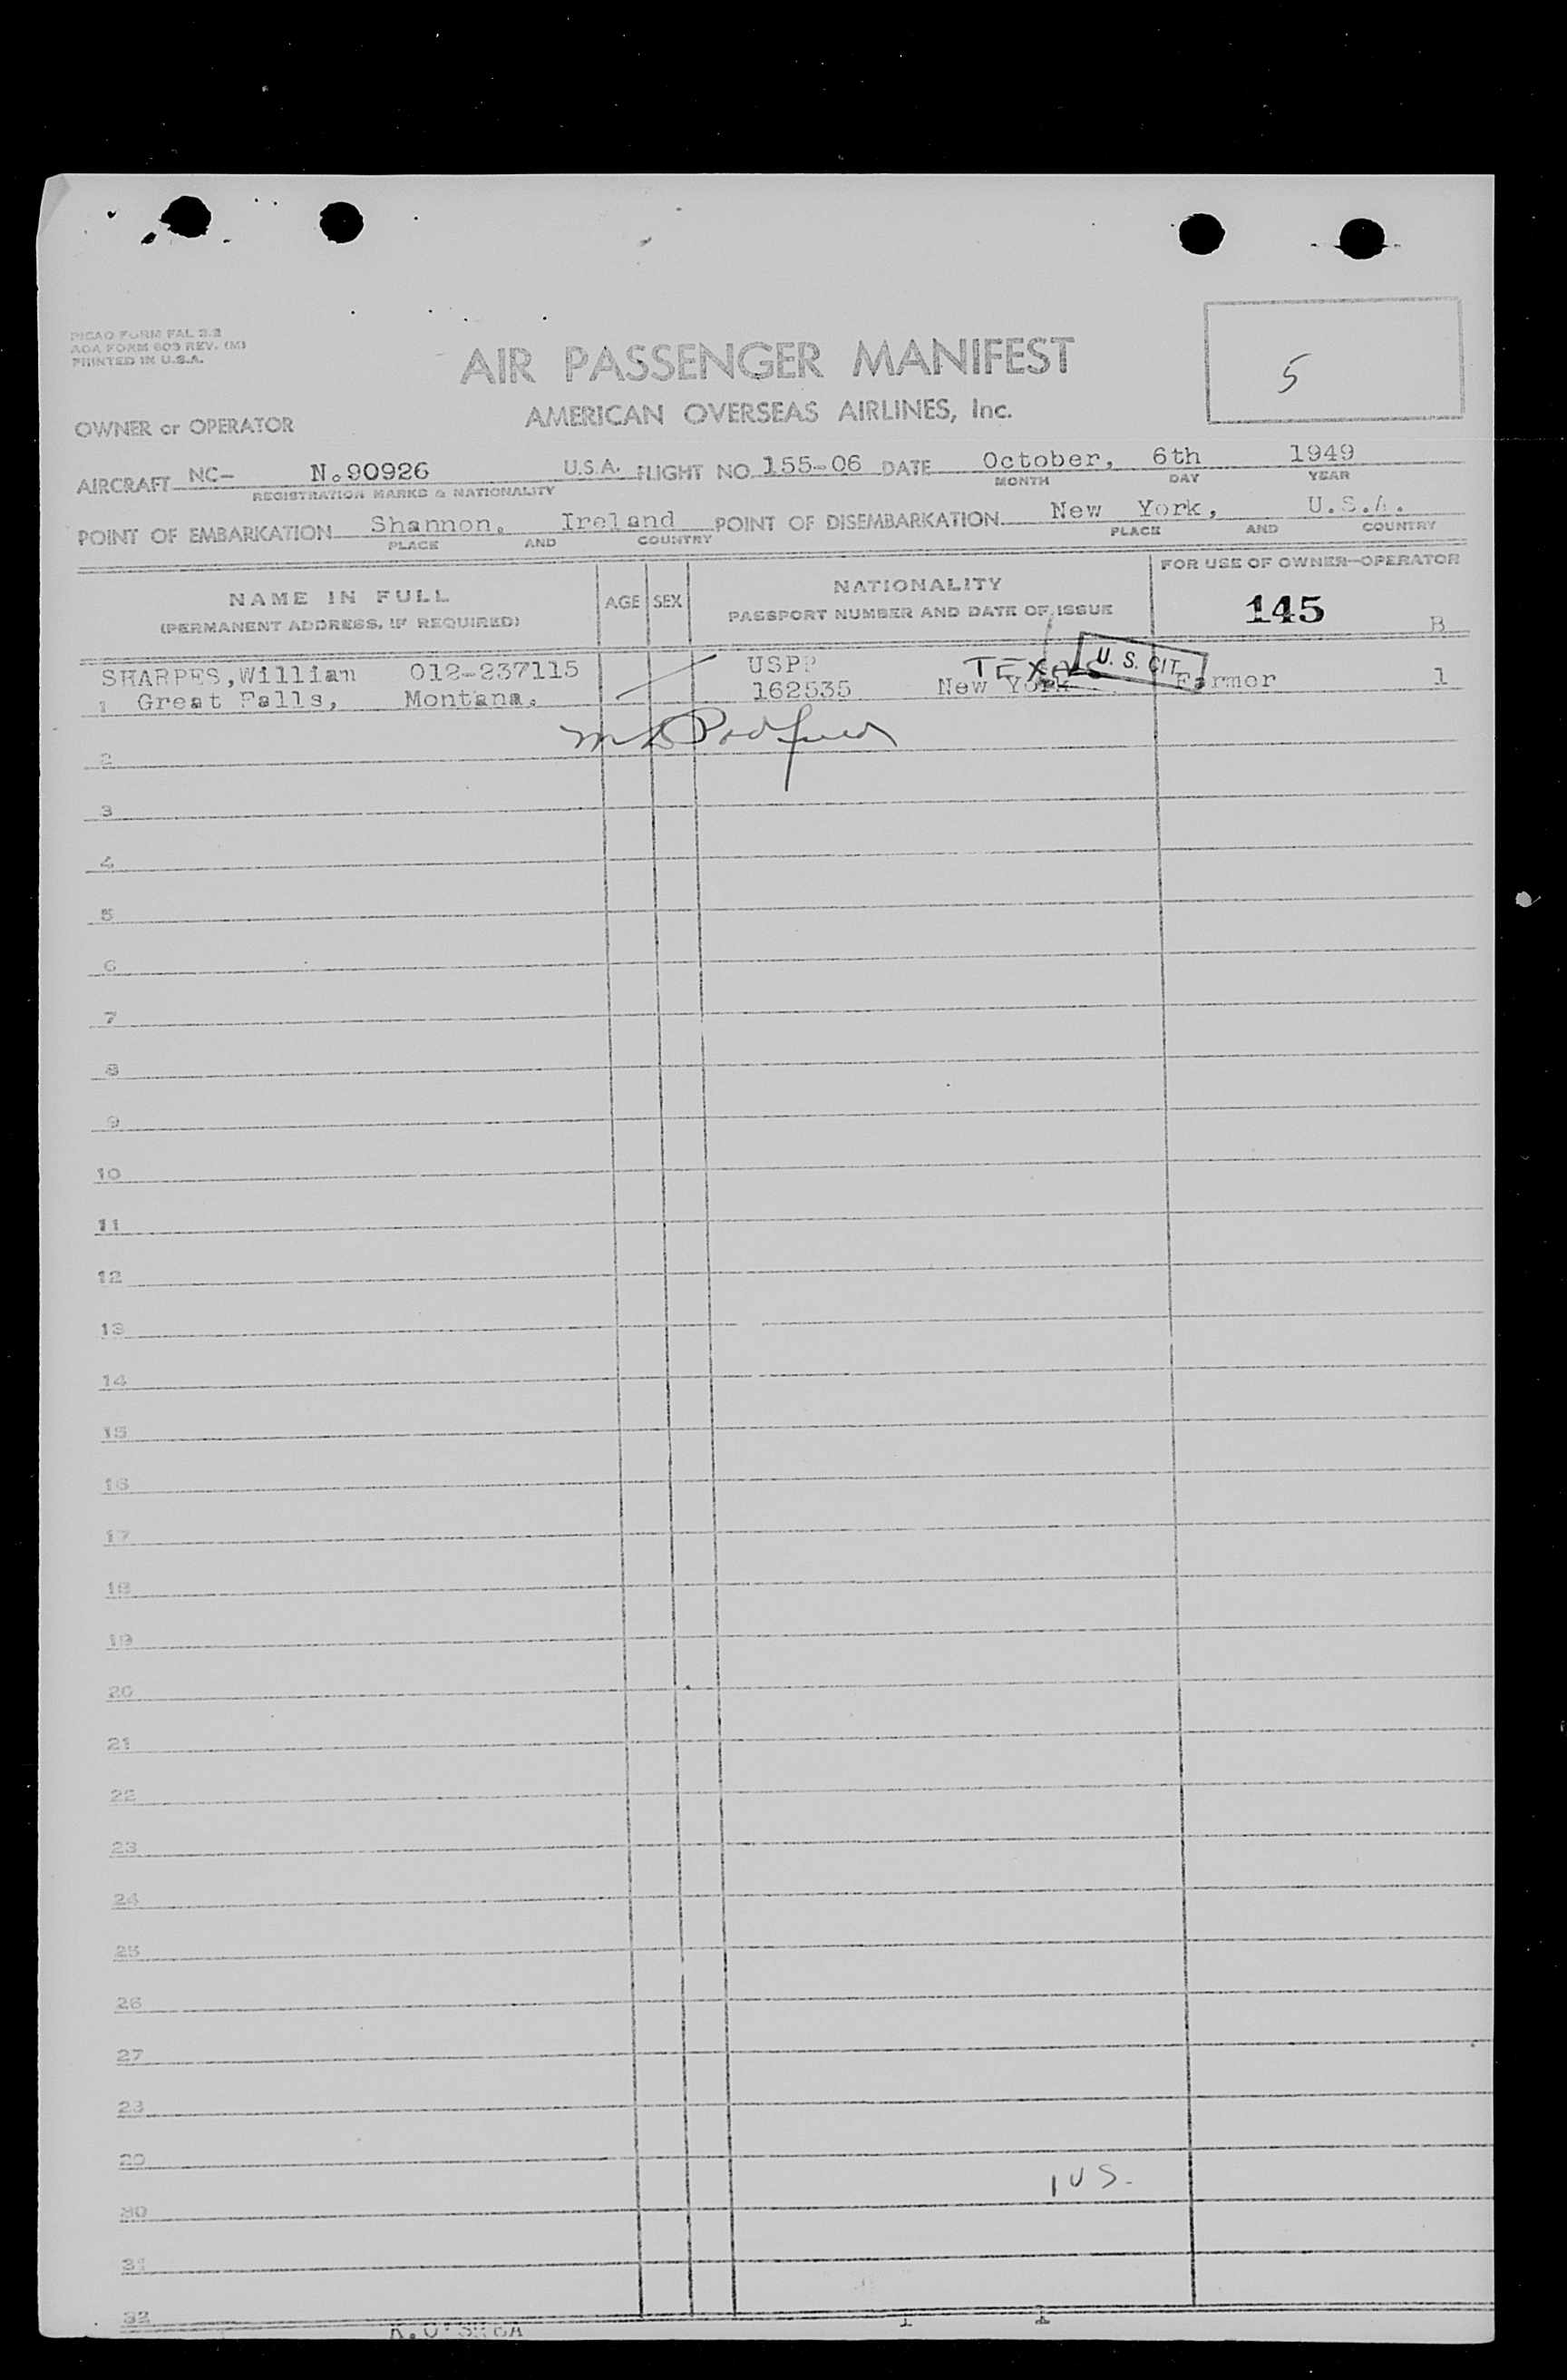 PICAO FORM FAL 2.2
AOA FORM 603 REV. (M)
PRINTED IN U.S.A.
AIR PASSENGER MANIFEST
5
AMERICAN OVERSEAS AIRLINES, Inc.
OWNER or OPERATOR
AIRCRAFT NC- N.90926 U.S.A. FLIGHT NO. 155-06 DATE October, 6th 1949
REGISTRATION MARKS & NATIONALITY MONTH DAY YEAR
POINT OF EMBARKATION Shannon, Ireland POINT OF DISEMBARKATION New York, U.S.A.
PLACE AND COUNTRY PLACE AND COUNTRY
NAME IN FULL AGE SEX NATIONALITY FOR USE OF OWNER-OPERATOR
(PERMANENT ADDRESS, IF REQUIRED) PASSPORT NUMBER AND DATE OF ISSUE 145 B
SHARPES,William 012-237115 USPP TEXAS U. S. CIT.
1 Great Falls, Montana. 162535 New York Farmer 1
2
3
4
5
6
7
8
9
10
11
12
13
14
15
16
17
18
19
20
21
22
23
24
25
26
27
28
29
1 U S.
30
31
32
K.O'SHEA 1 1